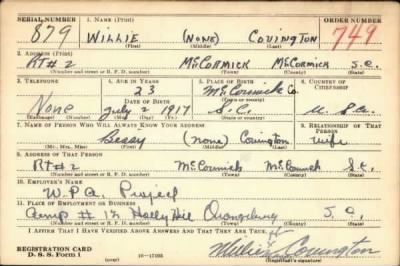 SERIAL NUMBER 1. NAME (Print) ORDER NUMBER
879 WILLIE (NONE) COVINGTON 749
(First) (Middle) (Last)
2. ADDRESS (Print)
RT# 2 McCORMICK McCORMICK S.C.
(Number and street or R. F. D. number) (Town) (County) (State)
3. TELEPHONE 4. AGE IN YEARS 5. PLACE OF BIRTH 6. COUNTRY OF CITIZENSHIP
23 McCormick Co.
DATE OF BIRTH
None July 2 1917 S.C. U.S.A.
7. NAME OF PERSON WHO WILL ALWAYS KNOW YOUR ADDRESS 8. RELATIONSHIP OF THAT PERSON
Bessy (none) Covington Wife
(Mr., Mrs., Miss) (First) (Middle) (Last)
9. ADDRESS OF THAT PERSON
Rt # 2 McCormick McCormick S.C.
(Number and street or R. F. D. number) (Town) (County) (State)
10. EMPLOYER'S NAME
W.P.A. Project
11. PLACE OF EMPLOYMENT OR BUSINESS
Camp # 12 Holly Hill Orangeburg S.C.
(Number and street or R. F. D. number) (Town) (County) (State)
I AFFIRM THAT I HAVE VERIFIED ABOVE ANSWERS AND THAT THEY ARE TRUE.
REGISTRATION CARD
D. S. S. Form 1 (over) 16-17105 Willie Covington
(Registrant's signature)